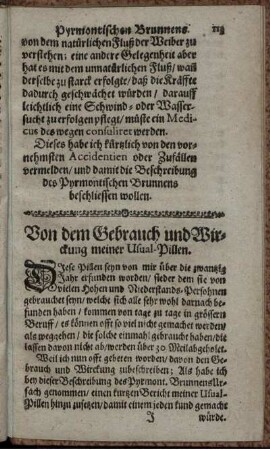 Pyrmontischen Brunnens. 113
von dem natürlichen Fluß der Weiber zu
verstehen; eine andere Gelegenheit aber
hat es mit dem unnatürlichen Fluß/ wañ
derselbe zu starck erfolgte/ daß die Kräffte
dadurch geschwächet würden/ darauff
leichtlich eine Schwind- oder Wasser-
sucht zu erfolgen pflegt/ müste ein Medi-
cus des wegen consuliret werden.
Dieses habe ich kürtzlich von den vor-
nehmsten Accidentien oder Zufällen
vermelden/ und damit die Beschreibung
des Pyrmontischen Brunnens
beschliessen wollen.
Von dem Gebrauch und Wir-
ckung meiner Usual-Pillen.
Diese Pillen seyn von mir über die zwantzig
Jahr erfunden worden/ sieder dem sie von
vielen Hohen und Niederstands-Persohnen
gebrauchet seyn/ welche sich alle sehr wohl darnach be-
funden haben/ kommen von tage zu tage in grössern
Beruff/ es können offt so viel nicht gemachet werden/
als weggehen/ die solche einmahl gebrauchet haben/die
lassen davon nicht ab/werden über 30 Meil abgeholet.
Weil ich nun offt gebeten worden/ davon den Ge-
brauch und Wirckung zubeschreiben; Als habe ich
bey dieser Beschreibung des Pyrmont. Brunnens Ur-
sach genommen/ einen kurtzen Bericht meiner Usual-
Pillen hinzu zusetzen/ damit einem jeden kund gemacht
J würde.